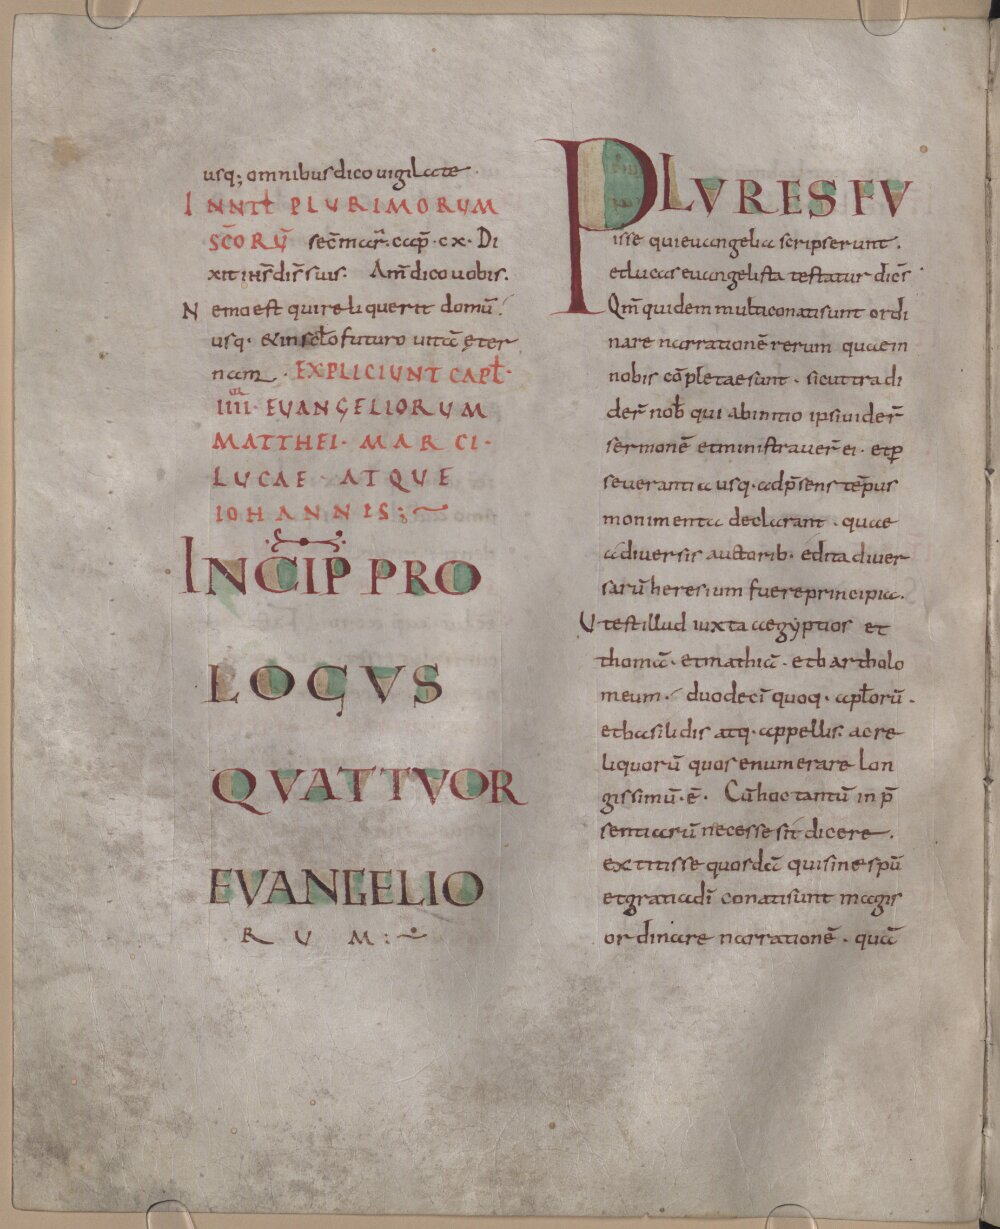 usq; omnibus dico uigilate·
IN NĪT PLURIMORUM
SC̄ORŪ sec̄ mar̄. cap̄· cx· Di
xit ih̄s dis̄ suis· Am̄ dico uobis.
Nemo est qui reliquerit domū.
usq· & in scło futuro uitā ęter
nam· EXPLICIUNT CAPŁ·
IIII· EUANGELIORUM
MATTHEI· MARCI·
LUCAE· ATQUE
IOHANNIS:
INCIP̄ PRO
LOGVS
QVATTVOR
EVANGELIO
RUM:
PLVRES FU
isse qui euangelia scripserunt.
et lucas euangelista testatur dicēs·
Qm̄ quidem multi conati sunt ordi
nare narrationē rerum quae in
nobis cōpletae sunt· sicut tradi
der̄ nob̄ qui ab initio ipsi uider̄
sermonē et ministrauer̄ ei· et ꝑ
seuerantia usq· ad p̄sens tēpus
monimenta declarant· quae
a diuersis auctorib· edita diuer
sarū heresium fuere principia.
Ut est illud iuxta aegyptios et
thomā· et mathiā· et bartholo
meum· duodecī quoq· apłorū·
et basilidis atq· appellis· ac re
liquorū quos enumerare lon
gissimū·ē· Cū hoc tantū in p̄
sentiarū necesse sit dicere.
extitisse quosdā qui sine spū
et gratia dī conati sunt magis
ordinare narrationē· quā